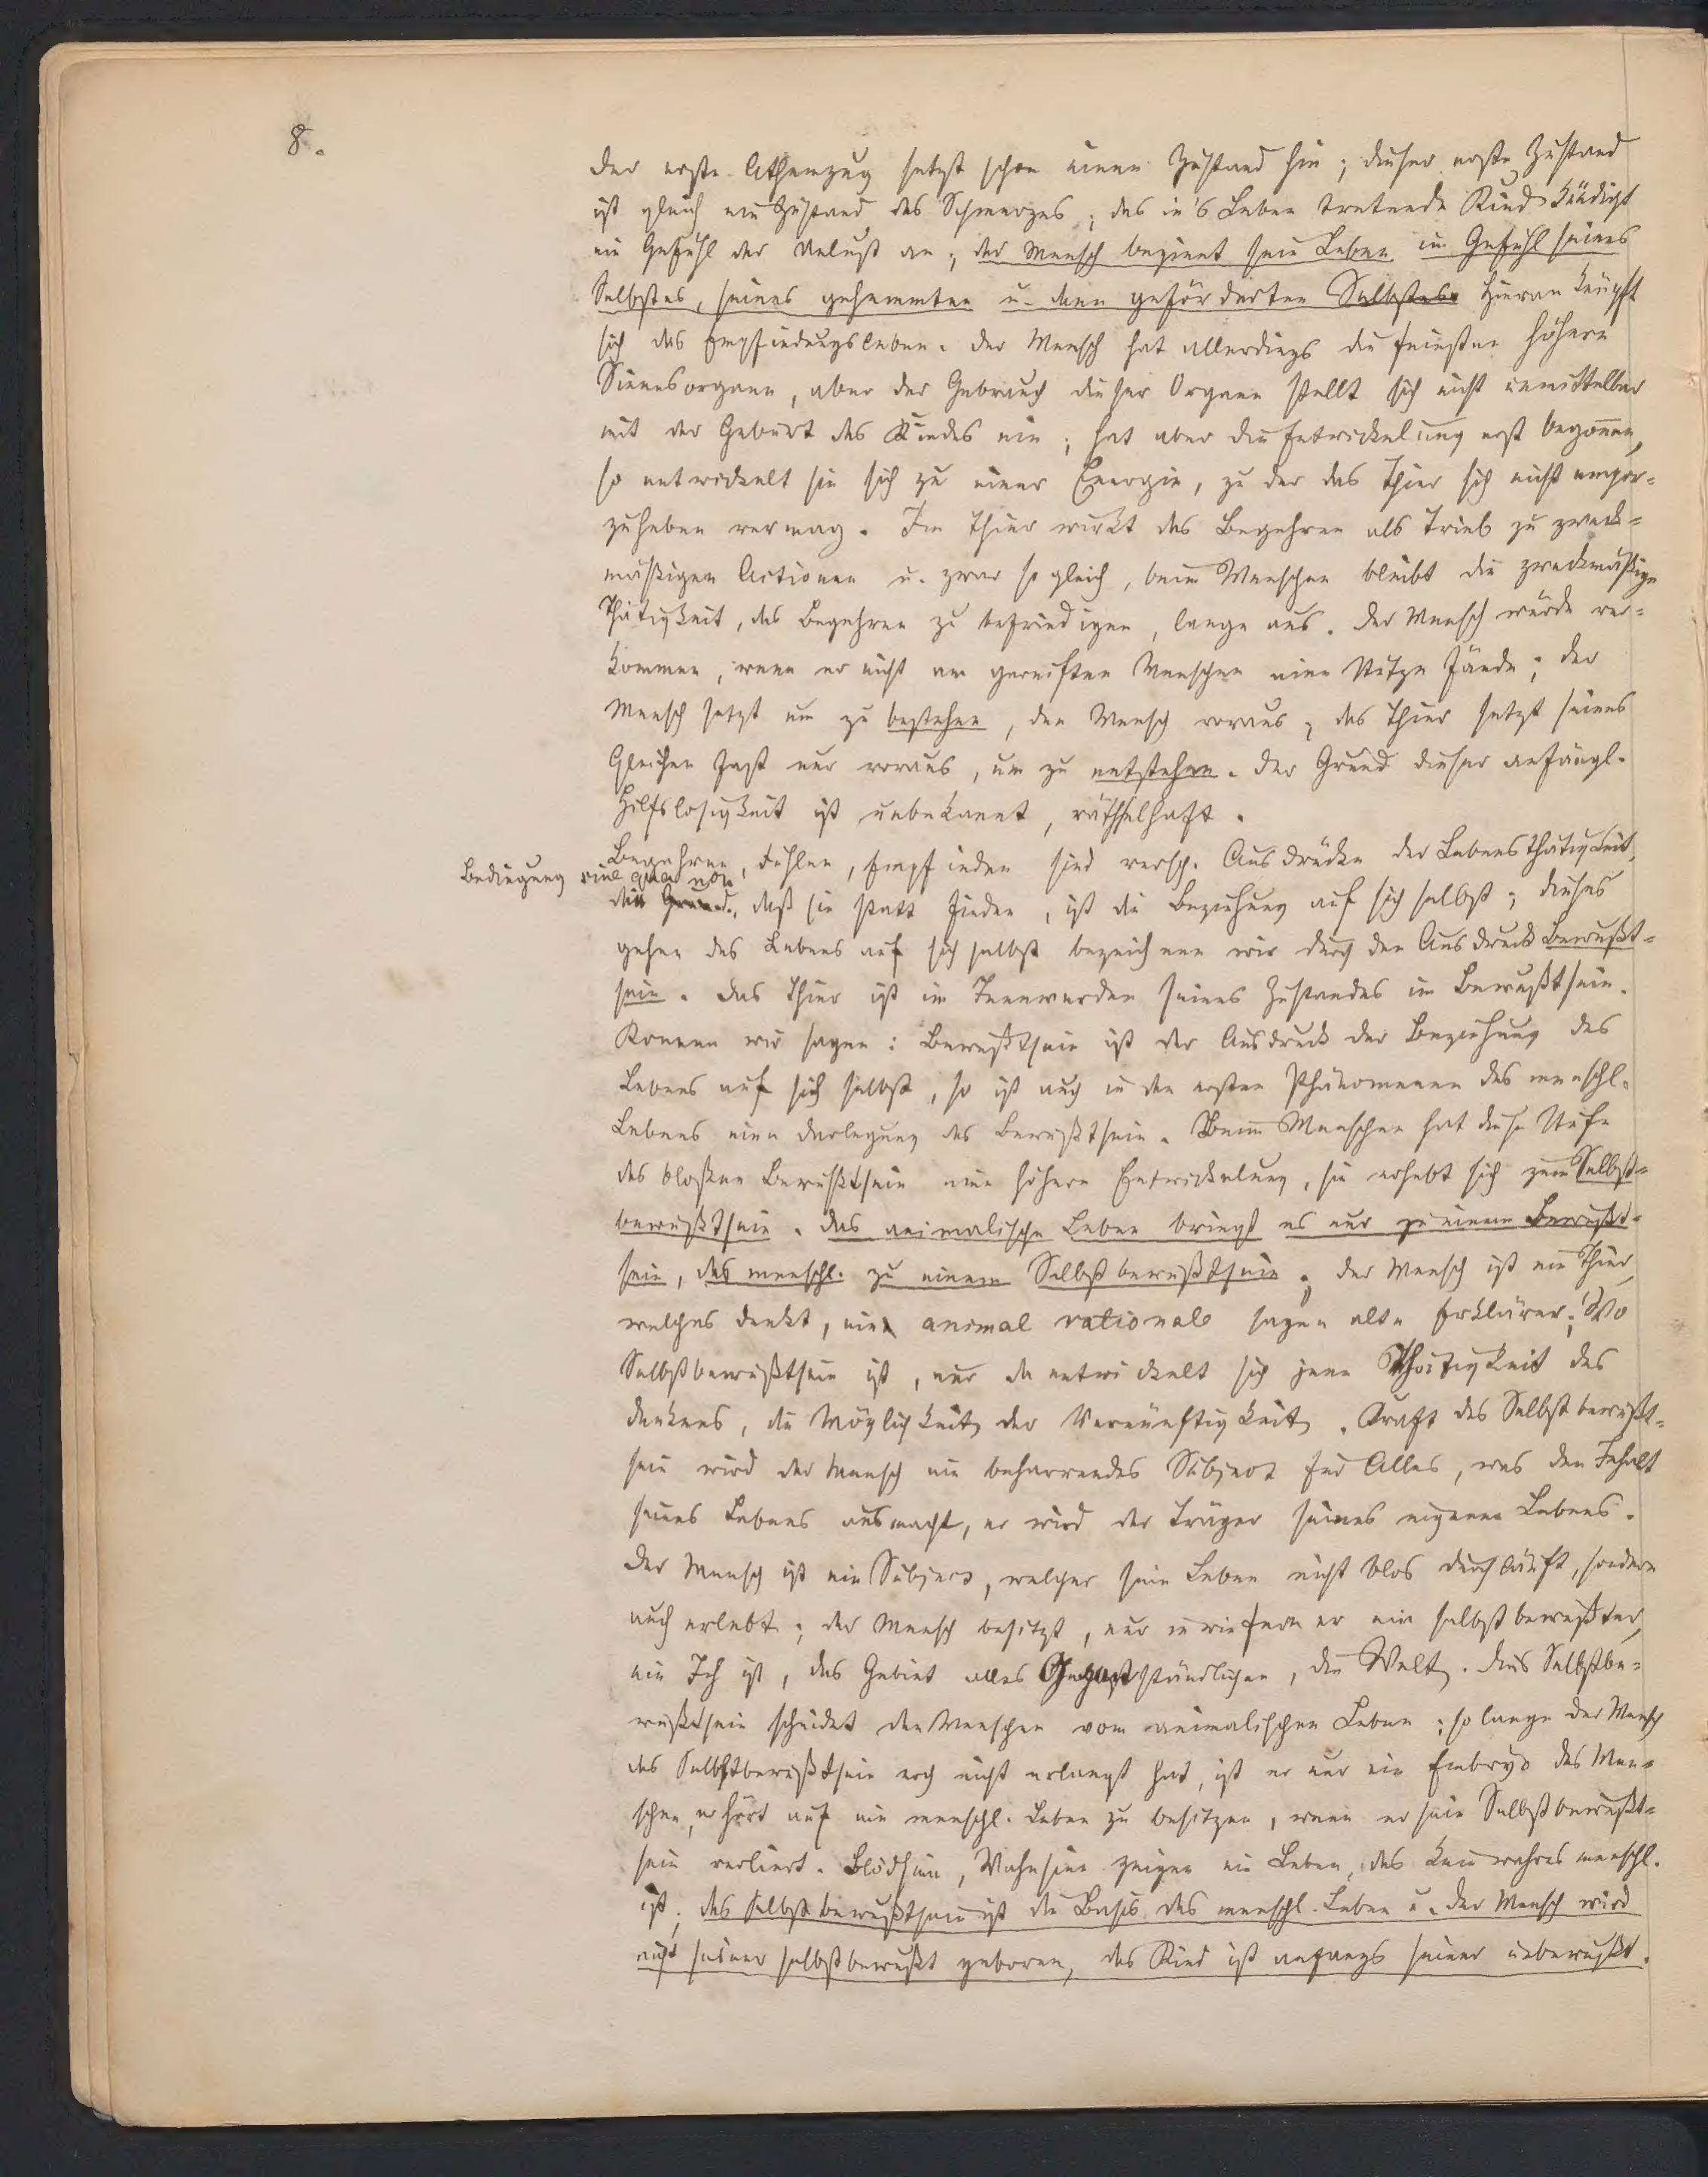 8.
Der erste Athemzug setzt schon einen Zustand hin; dieser erste Zustand
ist gleich ein Zustand des Schmerzes; das in's Leben tretende Kind kündigt
ein Gefühl der Unlust an; der Mensch beginnt sein Leben im Gefühl seines
Selbstes, seines gehemmten u. dann geförderten Selbstes. Hieran knüpft
sich das Empfindungsleben. Der Mensch hat allerdings die feinsten höhern
Sinnesorgane, aber der Gebrauch dieser Organe stellt sich nicht unmittelbar
mit der Geburt des Kindes ein; hat aber die Entwickelung erst begonnen,
so entwickelt sie sich zu einer Energie, zu der das Thier sich nicht empor-
zuheben vermag. Im Thier wirkt das Begehren als Trieb zu zweck-
mäßigen Actionen u. zwar sogleich, beim Menschen bleibt die zweckmäßige
Thätigkeit, das Begehren zu befriedigen, lange aus. Der Mensch würde ver-
kommen, wenn er nicht am gereiften Menschen eine Stütze fände; der
Mensch setzt um zu bestehen, den Mensch voraus, das Thier setzt seines
Gleichen fast nur voraus, um zu entstehen. Der Grund dieser anfängl.
Hilfslosigkeit ist unbekannt, räthselhaft.
Begehren, Fühlen, Empfinden sind versch. Ausdrücke der Lebensthätigkeit,
Bedingung sine qua non
den Grund, daß sie statt finden, ist die Beziehung auf sich selbst; dieses
gehen des Lebens auf sich selbst bezeichnen wir durch den Ausdruck Bewußt-
sein. Das Thier ist im Innewerden seines Zustandes im Bewußtsein.
Konnen wir sagen: Bewußtsein ist der Ausdruck der Beziehung des
Lebens auf sich selbst, so ist auch in den ersten Phänomenen des menschl.
Lebens eine Darlegung des Bewußtsein. Beim Menschen hat diese Stufe
des bloßen Bewußtsein eine höhere Entwickelung, sie erhebt sich zum Selbst-
bewußtsein. Das animalische Leben bringt es nur zu einem Bewußt-
sein, das menschl. zu einem Selbstbewußtsein; der Mensch ist ein Thier,
welches denkt, ein animal rationale sagen alte Erklärer; Wo
Selbstbewußtsein ist, nur da entwickelt sich jene Thätigkeit des
Denkens, die Möglichkeit der Vernünftigkeit. Kraft des Selbstbewußt-
sein wird der Mensch ein beharrendes Subject für Alles, was den Inhalt
seines Lebens ausmacht, er wird der Träger seines eigenen Lebens.
Der Mensch ist ein Subject, welches sein Leben nicht blos durchläuft, sondern
auch erlebt; der Mensch besitzt, nur in wiefern er ein selbstbewußter,
ein Ich ist, das Gebiet alles Gegenständlichen, die Welt. Dies Selbstbe-
wußtsein scheidet den Menschen vom animalischen Leben; so lange der Mensch
das Selbstbewußtsein noch nicht erlangt hat, ist er nur ein Embryo des Men-
schen, er hört auf ein menschl. Leben zu besitzen, wenn er sein Selbstbewußt-
sein verliert. Blödsinn, Wahnsinn zeigen ein Leben, das kein wahres menschl.
ist; das Selbstbewußtsein ist die Basis des menschl. Leben u. der Mensch wird
nicht seiner selbstbewußt geboren, das Kind ist anfangs seiner unbewußt.